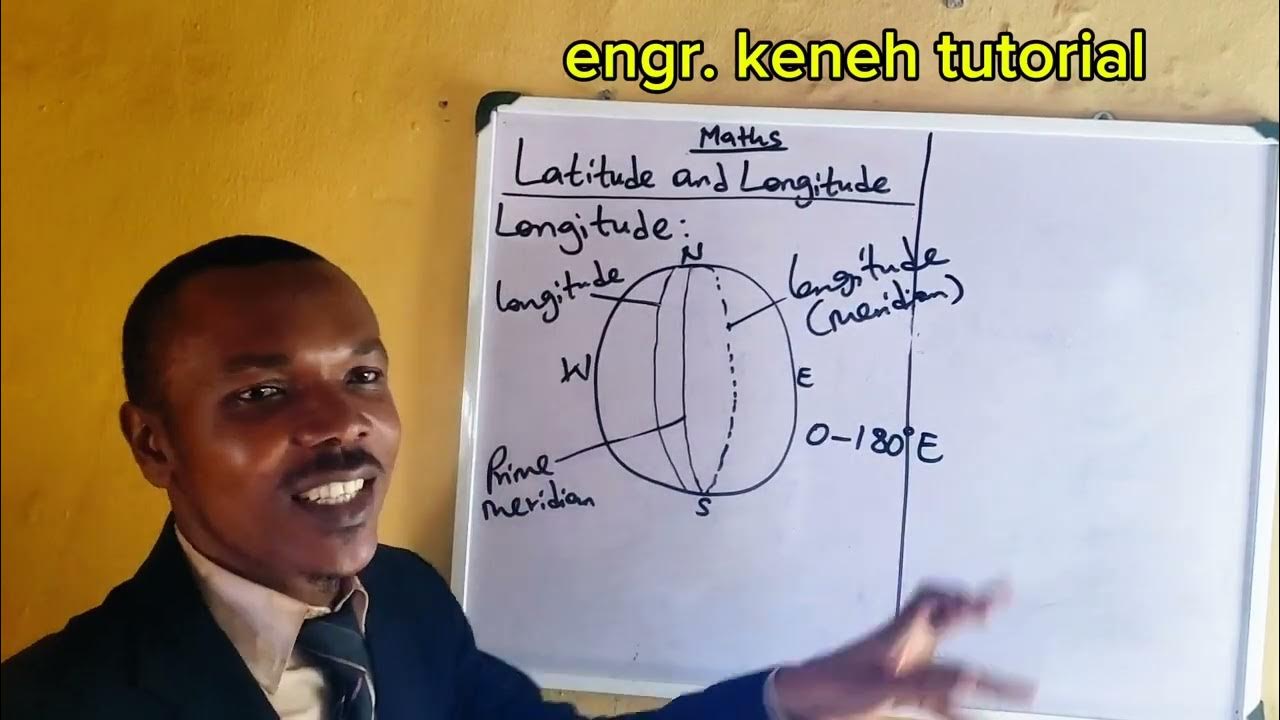 engr. keneh tutorial
Maths
Latitude and Longitude
Longitude:
N
Longitude
Longitude
(meridian)
W
E
0-180°E
Prime
meridian
S